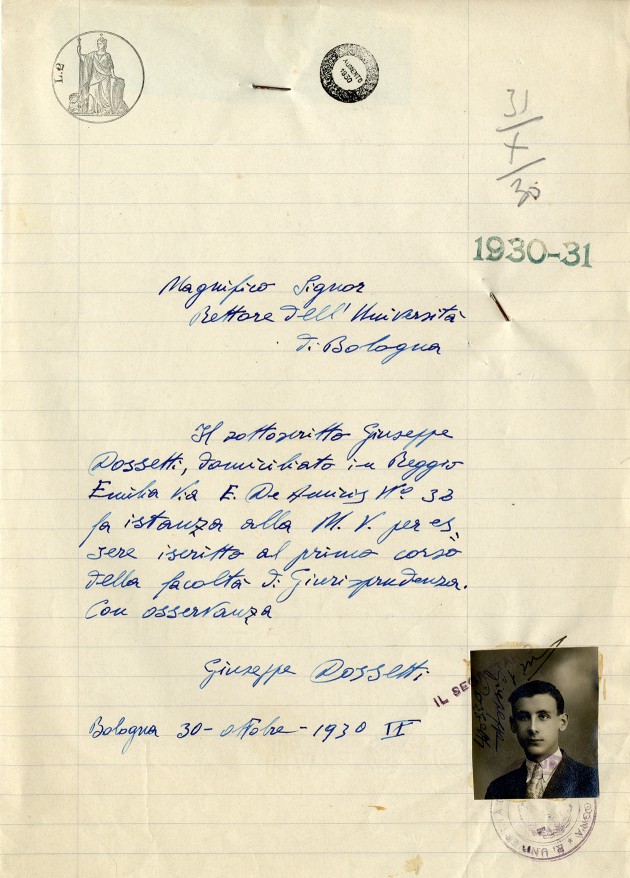 L. 2
AUMENTO
1930
31/X/30
1930-31
Magnifico Signor
Rettore dell'Università
di Bologna
Il sottoscritto Giuseppe
Dossetti, domiciliato in Reggio
Emilia Via E. De Amicis Nº 32
fa istanza alla M. V. per es=
sere iscritto al primo corso
della facoltà di Giurisprudenza.
Con osservanza
Giuseppe Dossetti
IL SEG
Bologna 30-ottobre-1930 IX
Giuseppe
Dossetti
R. UNI